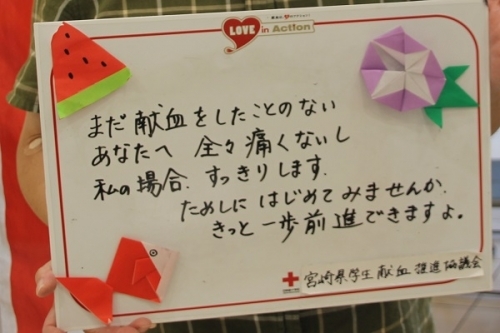 LOVE in Action
まだ献血をしたことのない
あなたへ 全々痛くないし
私の場合.すっきりします.
ためしに はじめてみませんか.
きっと一歩前進できますよ。
宮崎県学生献血推進協議会